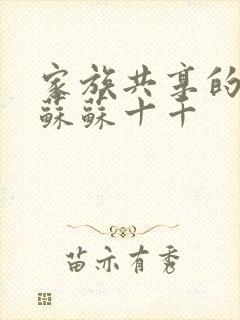 家族共享的
蘇蘇十千
苗亦有秀